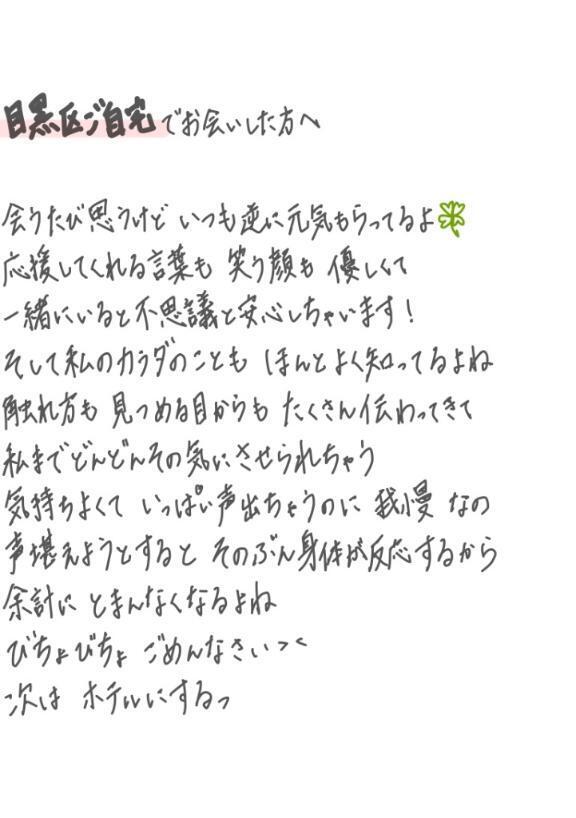 目黒区ご自宅でお会いした方へ
会うたび思うけど いつも逆に元気もらってるよ🍀
応援してくれる言葉も 笑う顔も 優しくて
一緒にいると不思議と安心しちゃいます!
そして私のカラダのことも ほんとよく知ってるよね
触れ方も 見つめる目からも たくさん伝わってきて
私までどんどんその気にさせられちゃう
気持ちよくて いっぱい声出ちゃうのに 我慢 なの
声堪えようとすると そのぶん身体が反応するから
余計に とまんなくなるよね
びちょびちょ ごめんなさいっ><
次は ホテルにするっ